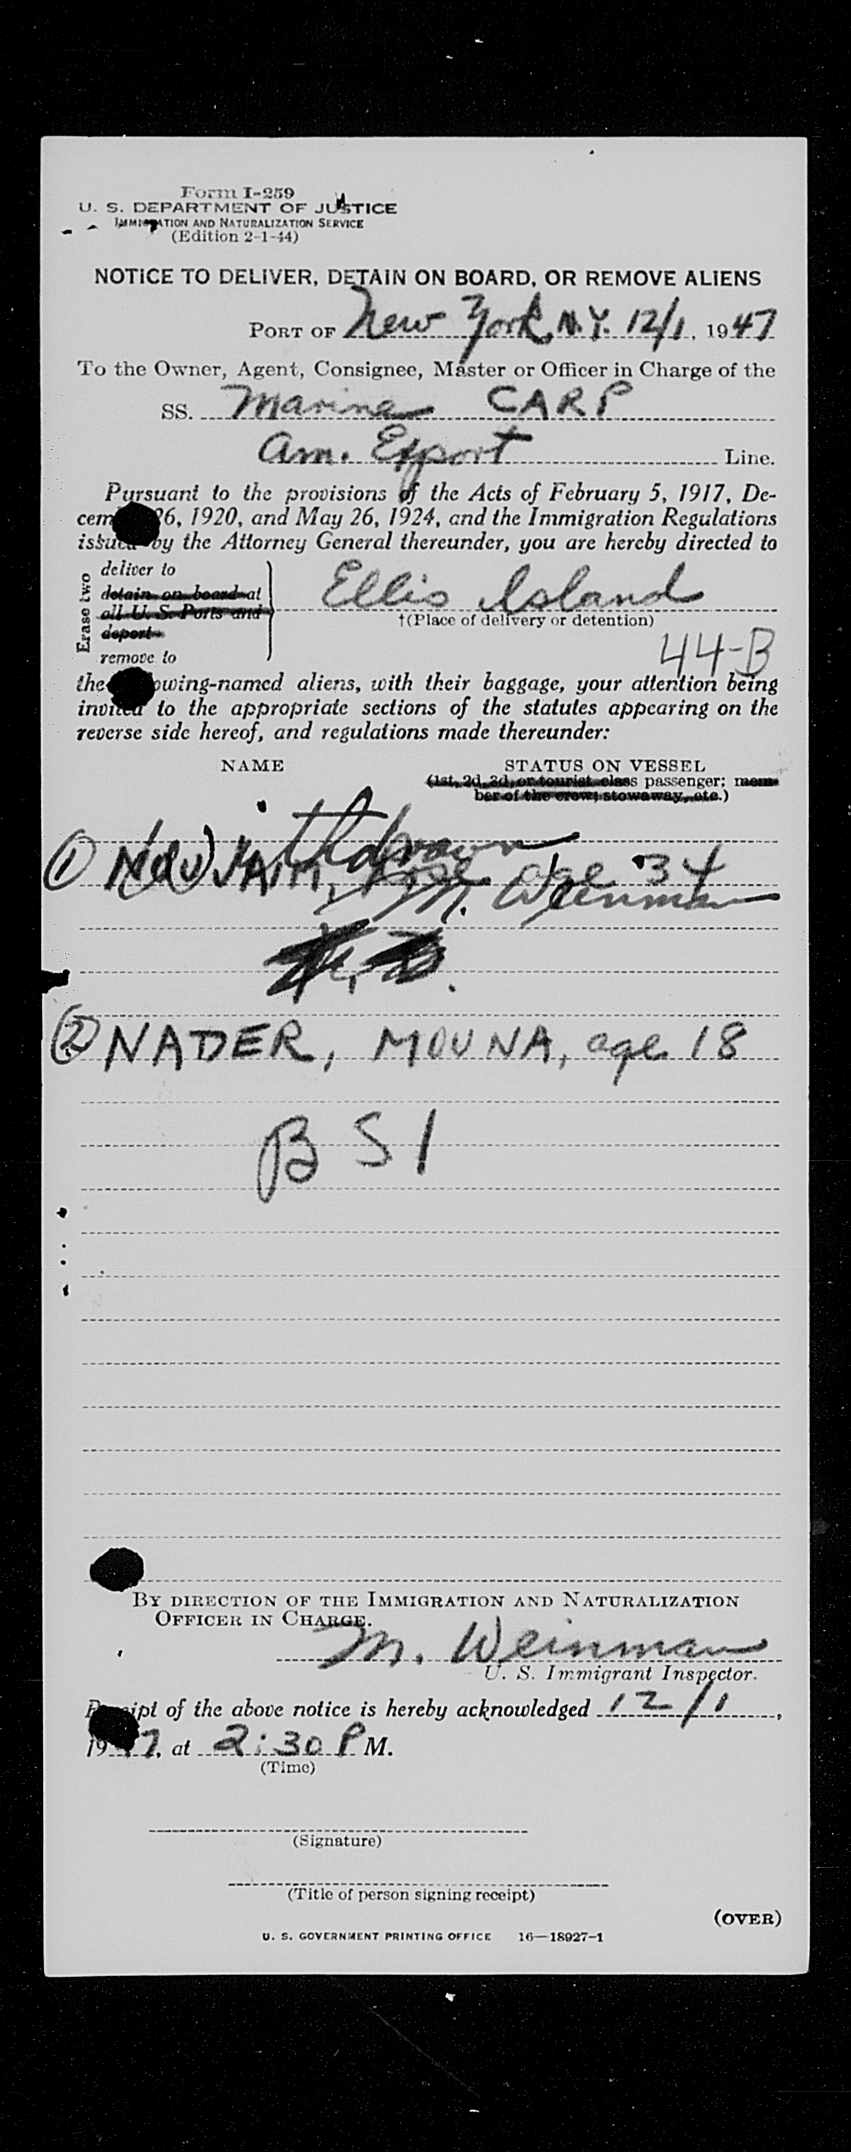 Form I-259
U. S. DEPARTMENT OF JUSTICE
IMMIGRATION AND NATURALIZATION SERVICE
(Edition 2-1-44)
NOTICE TO DELIVER, DETAIN ON BOARD, OR REMOVE ALIENS
PORT OF New York, N.Y. 12/1, 1947
To the Owner, Agent, Consignee, Master or Officer in Charge of the
SS. Marine CARP
Am. Export Line.
Pursuant to the provisions of the Acts of February 5, 1917, De-
cem 26, 1920, and May 26, 1924, and the Immigration Regulations
issued by the Attorney General thereunder, you are hereby directed to
Erase two
deliver to
detain on board at
all U. S. Ports and
deport
remove to
Ellis Island
†(Place of delivery or detention)
44-B
the owing-named aliens, with their baggage, your attention being
invited to the appropriate sections of the statutes appearing on the
reverse side hereof, and regulations made thereunder:
NAME STATUS ON VESSEL
(1st, 2d, 3d, or tourist class passenger; mem-
ber of the crew; stowaway, etc.)
Withdrawn
① Rose age 34
M. Weinman
② NADER, MOUNA, age 18
BSI
BY DIRECTION OF THE IMMIGRATION AND NATURALIZATION
OFFICER IN CHARGE.
M. Weinman
U. S. Immigrant Inspector.
Receipt of the above notice is hereby acknowledged 12/1,
1947, at 2:30 P M.
(Time)
(Signature)
(Title of person signing receipt)
(OVER)
U. S. GOVERNMENT PRINTING OFFICE 16—18927-1